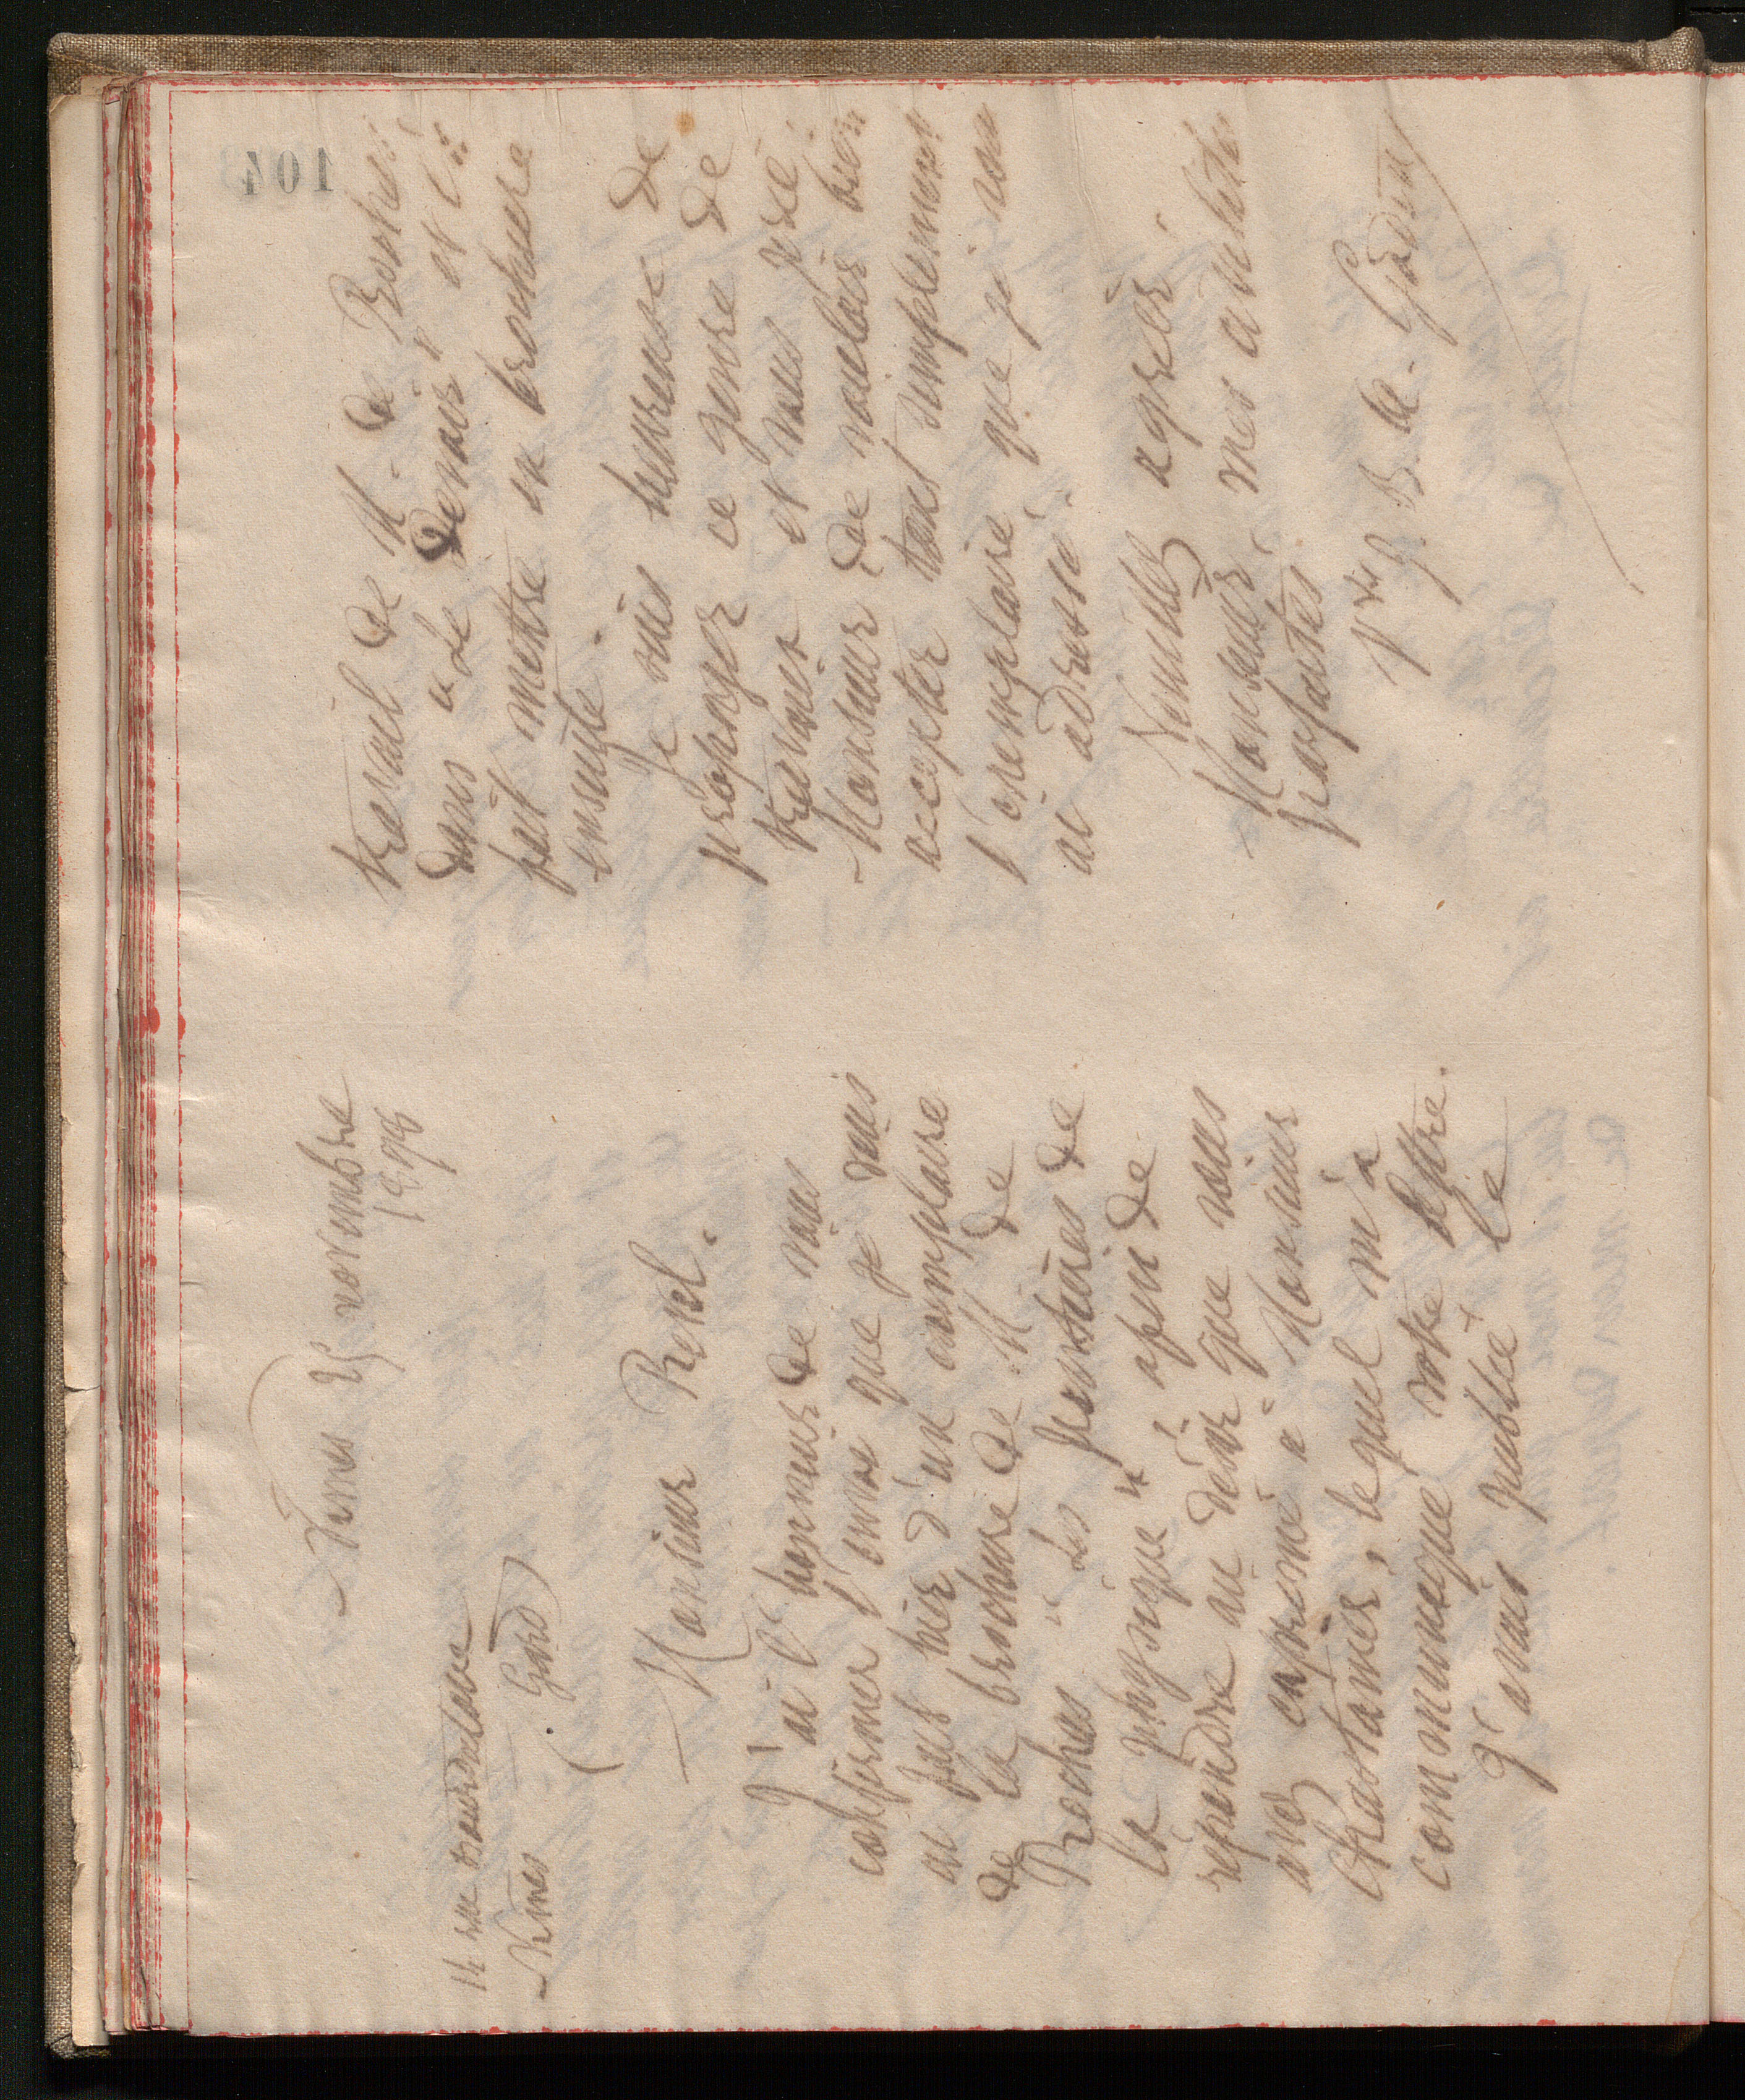 Nîmes 25 novembre
1898
14 rue Bourdaloue
Nîmes (Gard)
Monsieur Rekel.
J'ai l'honneur de vous
confirmer l'envoi que je vous
ai fait hier d'un exemplaire
de la brochure de M. de
Rochas "Les frontières de
la physique" afin de
répondre au désir que vous
avez exprimé à Monsieur
Chastanier, lequel m'a
communiqué votre lettre.
J'avais publié le
travail de M. de Rochas
dans "Le Devoir" et l'ai
fait mettre en brochure
ensuite.
Je suis heureuse de
propager ce genre de
travaux et vous prie
Monsieur de vouloir bien
accepter tout simplement
l'exemplaire que je vous
ai adressé.
Veuillez agréer
Monsieur, mes civilités
parfaites
Vve J. B. A. Godin
104